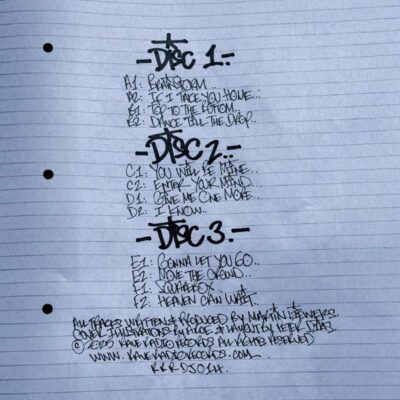 -DISC 1.-
A1: BRAINSTORM..
A2: IF I TAKE YOU HOME..
B1: TOP TO THE BOTTOM..
B2: DANCE TILL THE DROP..
-DISC 2.-
C1: YOU WILL BE MINE..
C2: ENTER YOUR MIND..
D1: GIVE ME ONE MORE..
D2: I KNOW..
-DISC 3.-
E1: GONNA LET YOU GO..
E2: MOVE THE CROWD..
F1: SQUAREBOX..
F2: HEAVEN CAN WAIT..
ALL TRACKS WRITTEN & PRODUCED BY MARTIN
COVER ILLUSTRATIONS BY & LAYOUT BY PETER
© 2025 RAVE RADIO RECORDS ALL RIGHTS RESERVED
WWW.RAVERADIORECORDS.COM..
RRRDJ014.